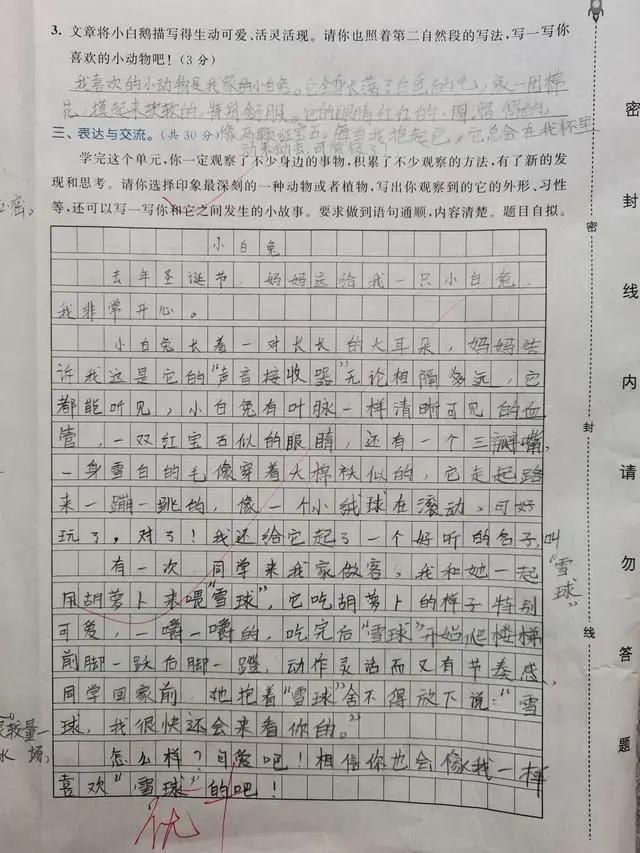 3. 文章将小白鹅描写得生动可爱、活灵活现。请你也照着第二自然段的写法，写一写你
喜欢的小动物吧！(3分)
我喜欢的小动物是我家的小白兔。它全身长满了白色的毛，像一团棉
花，摸起来软软的，特别舒服。它的眼睛红红的、圆溜溜的，
像两颗红宝石。每当我抱起它，它总会在我怀里
动来动去，可爱极了。
三、表达与交流。(共30分)
学完这个单元，你一定观察了不少身边的事物，积累了不少观察的方法，有了新的发
现和思考。请你选择印象最深刻的一种动物或者植物，写出你观察到的它的外形、习性
等，还可以写一写你和它之间发生的小故事。要求做到语句通顺，内容清楚。题目自拟。
小白兔
去年圣诞节，妈妈送给我一只小白兔，
我非常开心。
小白兔长着一对长长的大耳朵，妈妈告
诉我这是它的“声音接收器”无论相隔多远，它
都能听见，小白兔有叶脉一样清晰可见的血
管，一双红宝石似的眼睛，还有一个三瓣嘴，
一身雪白的毛像穿着大棉袄似的，它走起路
来一蹦一跳的，像一个小绒球在滚动，可好
玩了，对了！我还给它起了一个好听的名字，叫
“雪球”
有一次，同学来我家做客，我和她一起
用胡萝卜来喂“雪球”，它吃胡萝卜的样子特别
可爱，一嚼一嚼的，吃完后“雪球”开始爬楼梯
前脚一跃后脚一蹬，动作灵活而又有节奏感，
同学回家前，她抱着“雪球”舍不得放下说：“雪
球，我很快还会来看你的。”
怎么样？可爱吧！相信你也会像我一样
喜欢“雪球”的吧！
优
密
封
线
内
请
勿
答
题
密
封
线
较量一
水场，
密。